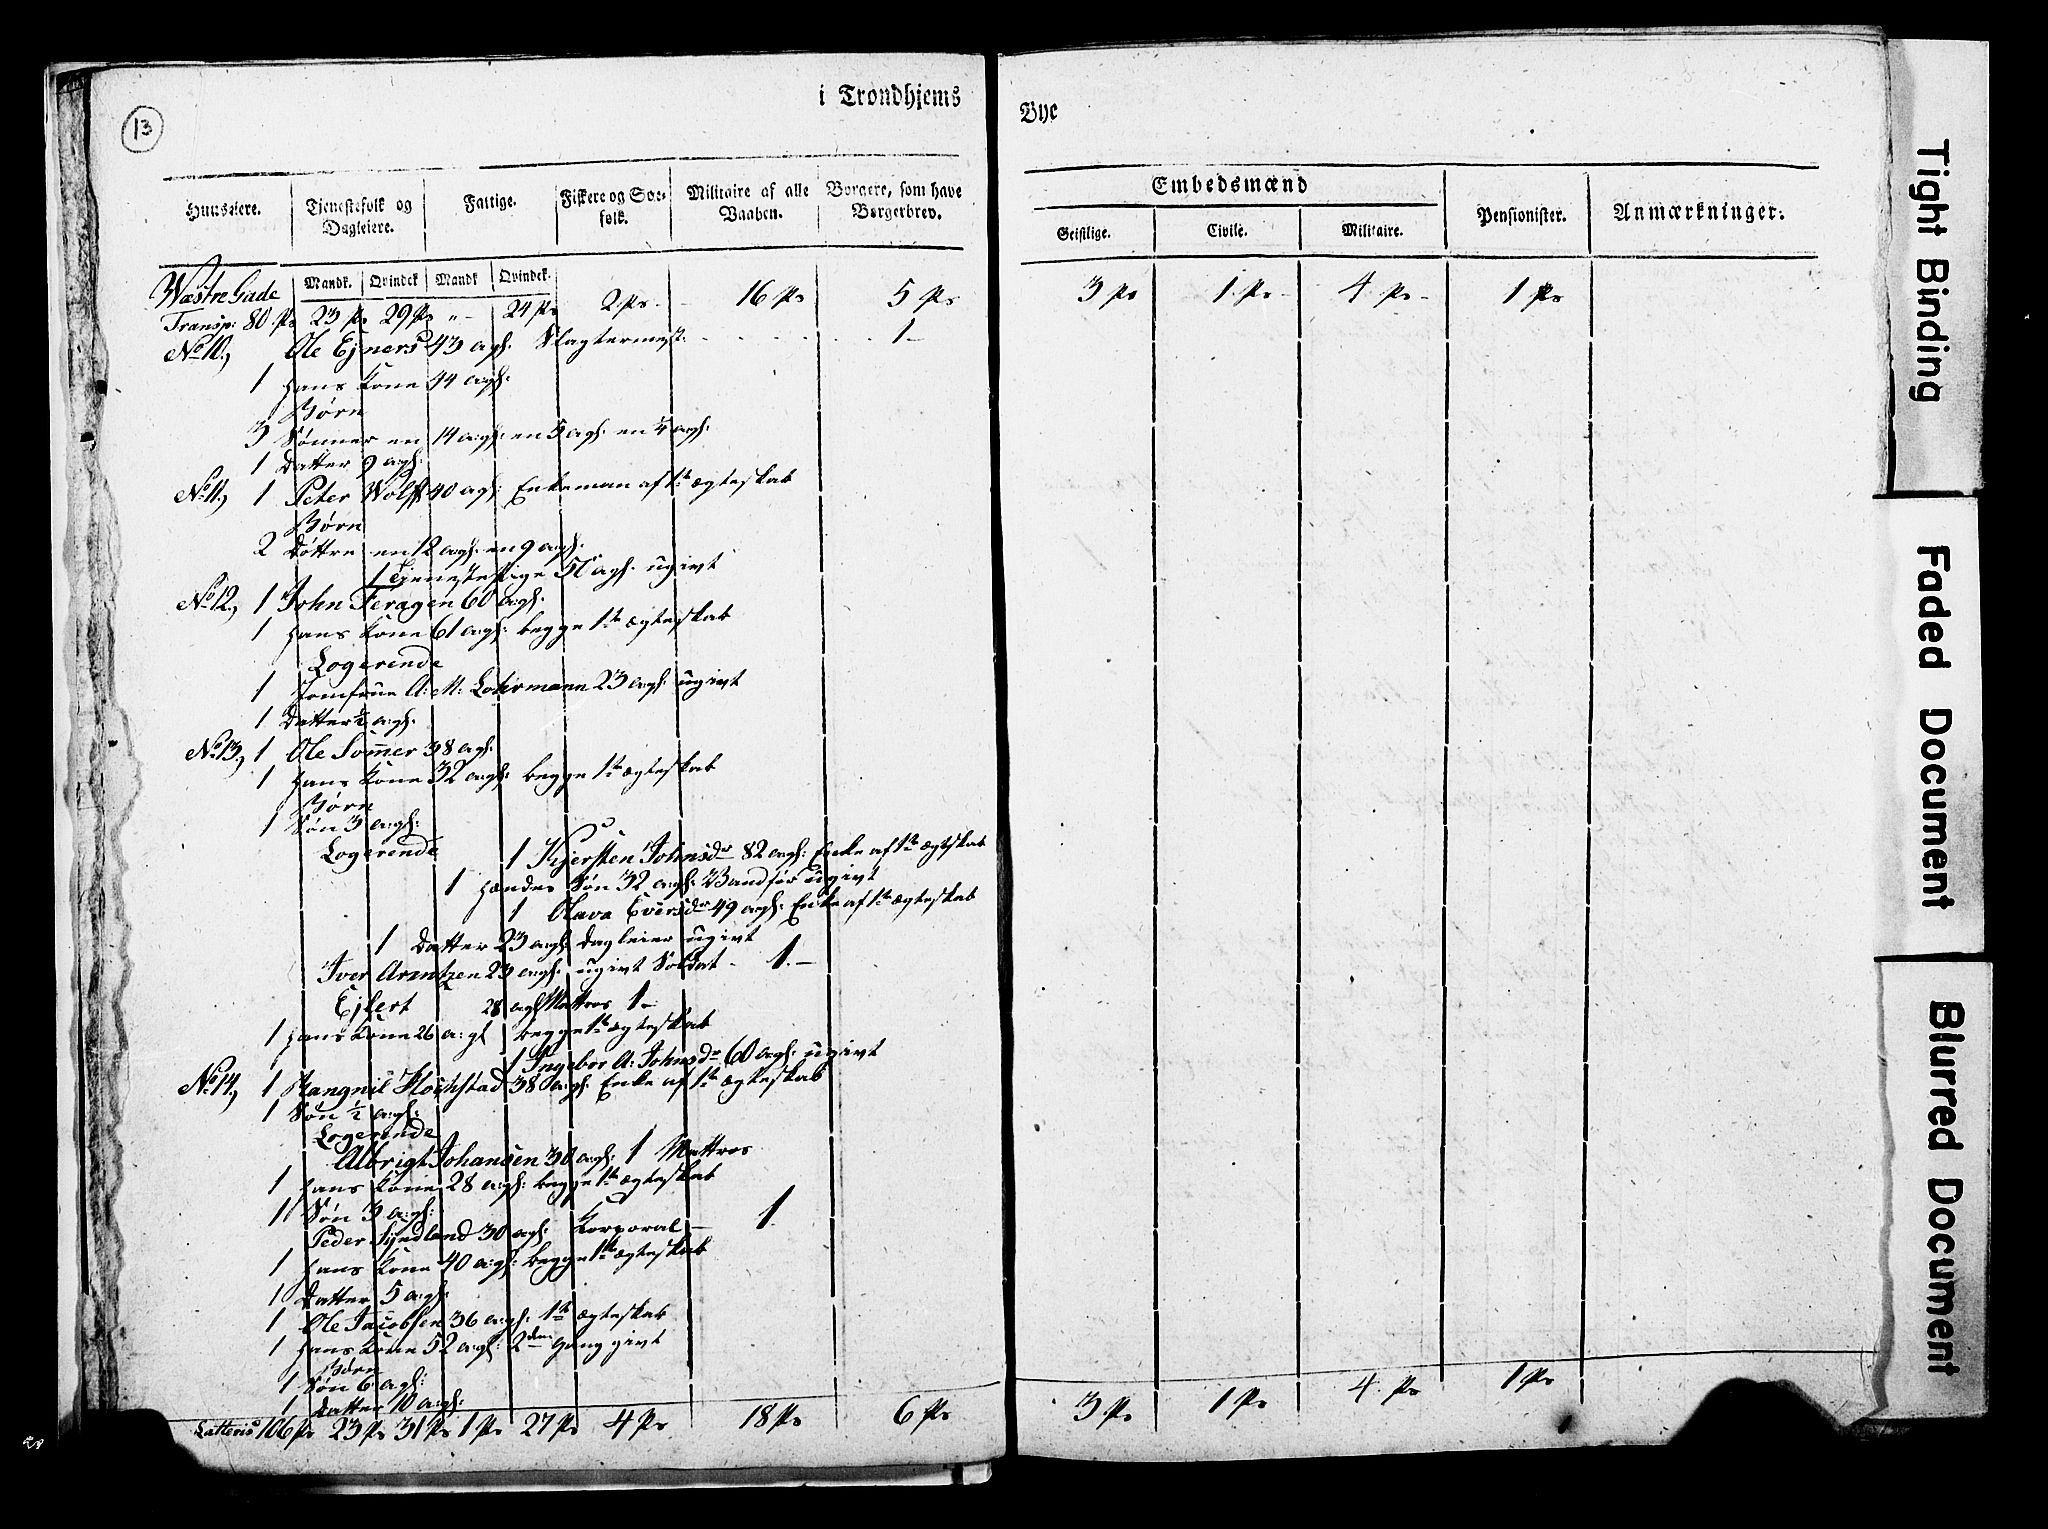 13
i Trondhjems Bye
Huuseiere. Tjenestefolk og Dagleiere. Fattige. Fiskere og Søefolk. Militaire af alle Vaaben. Borgere, som have Borgerbrev. Embedsmænd Geistlige. Civile. Militaire. Pensionister. Anmærkninger.
Mandk. Qvindek Mandk Qvindek.
Wæstre Gade
Transp: 80. Ps 23 Ps 29 Ps " - 24 Ps 2. Ps - 16 Ps 5 Ps 3 Ps 1. Ps - 4. Ps - 1 Ps
No 10, Ole Ejners 43 agl. Slagtermest. 1 -
1 Hans Kone 44 agl:
Børn
3 Sønner en 14 agl: en 5 agl. en 4 agl.
1 Datter 9 agl.
No 11, 1 Peter Wolff 40 agl: Enkeman af 1te ægteskab
Børn
2 Døttre en 12 agl. en 9 agl:
1 Tjenestepige 50 agl. ugivt
No 12, 1 John Feragen 60 agl.
1 Hans Kone 61 agl: begge 1te ægteskab
Logerende
1 Jomfrue A: M: Lohrmann 23 agl. ugivt
1 Datter ½ agl.
No 13, 1 Ole Sommer 38 agl.
1 Hans Kone 32 agl: begge 1te ægteskab
Børn
1 Søn 3 agl:
Logerende 1 Kjersten Johnsdr 82 agl: Enke af 1te ægteskab
1 Hendes Søn 32 agl: Vandfør ugivt
1 Olava Eversdr 49 agl: Enke af 1te ægteskab
1 Datter 23 agl. Dagleier ugivt
Iver Arntzen 23 agl. ugivt Soldat - 1. -
Ejlert 28 agl Mattros 1 -
1 Hans Kone 26 agl begge 1te ægteskab
1 Ingebor A: Johnsdr 60 agl: ugivt
No 14, 1 Rangnil 38 agl: Enke af 1te ægteskab
1 Søn ½ agl:
Logerende
Albrigt Johansen 30 agl: 1 Mattros
1 Hans Kone 28 agl: begge 1te ægteskab
1 Søn 3 agl:
Peder 30 agl. Korporal - 1.
1 Hans Kone 40 agl: begge 1te ægteskab
1 Datter 5 agl:
1 Ole Jacobsen 36 agl: 1te ægteskab
1 Hans Kone 52 agl: 2den gang givt
Børn
1 Søn 6 agl:
1 Datter 10 agl:
Latteris 106 Ps 23 Ps 31 Ps 1 Ps 27 Ps 4 Ps 18 Ps 6 Ps 3 Ps 1 Ps 4. Ps 1. Ps
Tight Binding
Faded Document
Blurred Document